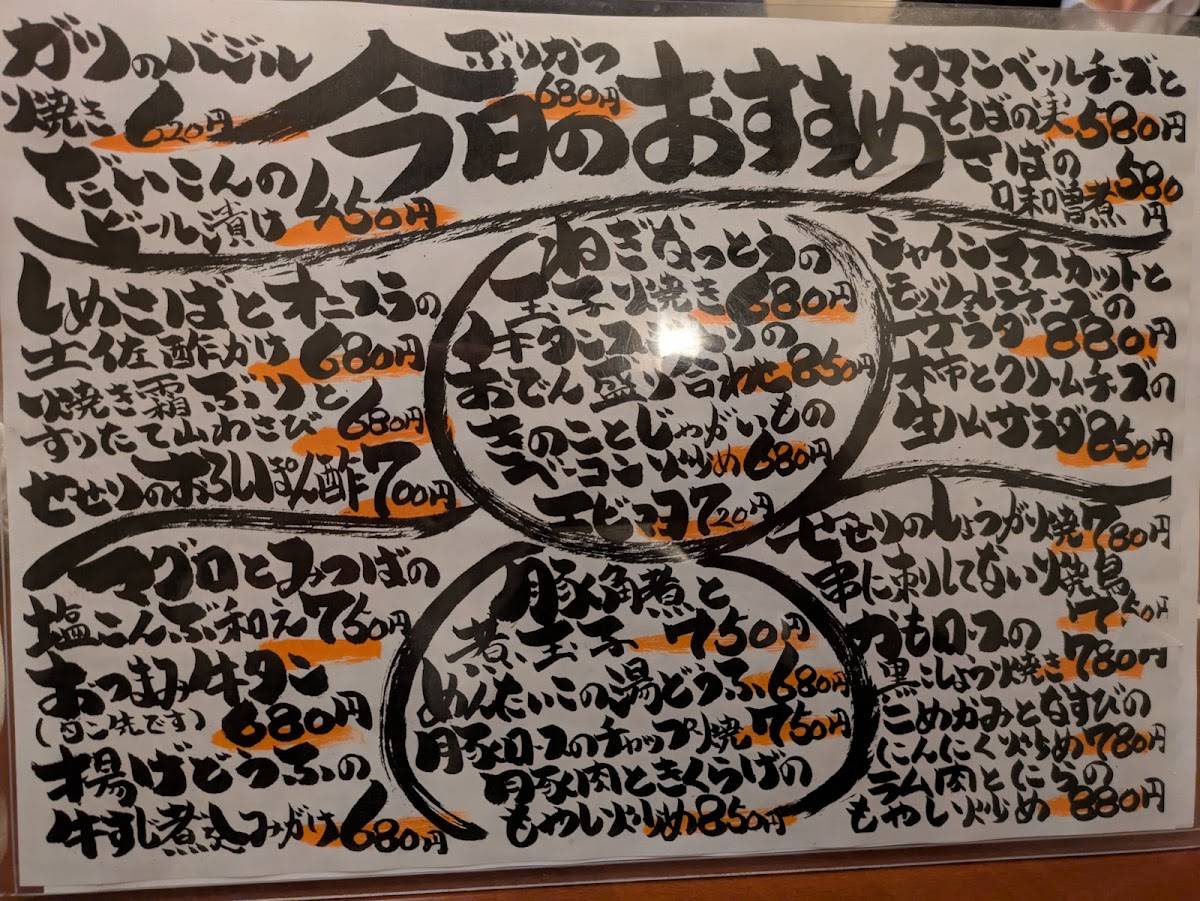 今日のおすすめ
ガツのバジル
焼き 620円
だいこんの
ビール漬け 450円
ぶりかつ
680円
カマンベールチーズと
そばの実 580円
さばの
味噌煮 580円
しめさばとオニスラの
土佐酢がけ 680円
焼き霜ぶりと
すりたて山わさび 680円
せせりのおろしぽん酢 700円
ねぎなっとうの
玉子焼き 680円
牛タンスト
の
おでん盛り合わせ 850円
きのことじゃがいもの
ベーコン炒め 680円
エビマヨ 720円
シャインマスカットと
モッツァレラチーズの
サラダ 880円
柿とクリームチーズの
生ハムサラダ 850円
マグロとみつばの
塩こんぶ和え 750円
おつまみ牛タン
680円
揚げどうふの
牛すじ煮込みがけ 680円
豚角煮と
煮玉子 750円
めんたいこの湯どうふ 680円
豚ロースのチャップ焼 750円
豚肉ときくらげの
もやし炒め 850円
せせりのしょうが焼 780円
串に刺してない焼鳥
750円
かもロースの
黒こしょう焼き 780円
こめかみとなすびの
にんにく炒め 780円
ラム肉とにらの
もやし炒め 880円